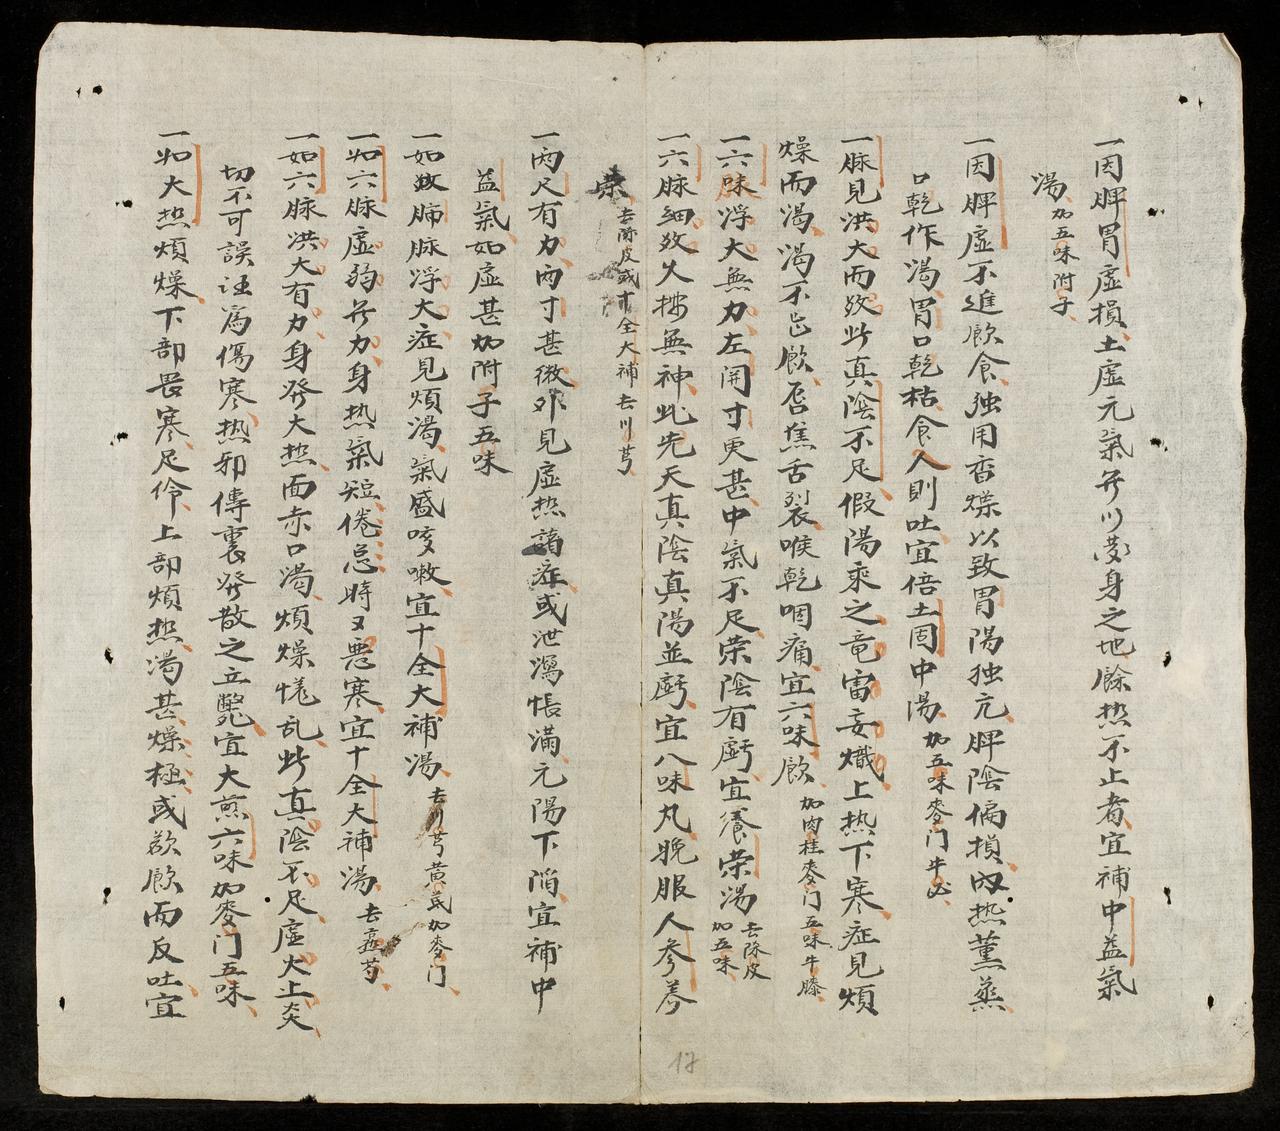 一因脾胃虛損土虛元氣無所藏身之地餘热不止者宜補中益氣
湯加五味附子
一因脾虛不進飲食独用香燥以致胃陽独亢脾陰偏損伏热薰蒸
口乾作渴胃口乾枯食入則吐宜倍土固中湯加五味麥门牛必
一脉見洪大而数此真陰不足假陽乘之竜雷妄熾上热下寒症見煩
燥而渴渴不忘飲唇焦舌裂喉乾咽痛宜六味飲加肉桂麥门五味牛膝
一六味浮大無力左関寸更甚中氣不足栄陰有虧宜養栄湯去陈皮加五味
一六脉細数久按無神此先天真陰真陽並虧宜八味丸晚服人參养
栄去陈皮或十全大補去川芎
一両尺有力両寸甚微外見虛热諸症或泄瀉悵滿元陽下陷宜補中
益氣如虛甚加附子五味
一如数肺脉浮大症見煩渴氣盛咳嗽宜十全大補湯去川芎黄芪加麥门
一如六脉虛弱無力身热氣短倦怠時又悪寒宜十全大補湯去芎
一如六脉洪大有力身發大热面赤口渴煩燥慌乱此真陰不足虛火上炎
切不可誤註為傷寒热邪傳裏發散之立斃宜大煎六味加麥门五味
一如大热煩燥下部畏寒足伶上部煩热渴甚燥極或欲飲而反吐宜
17